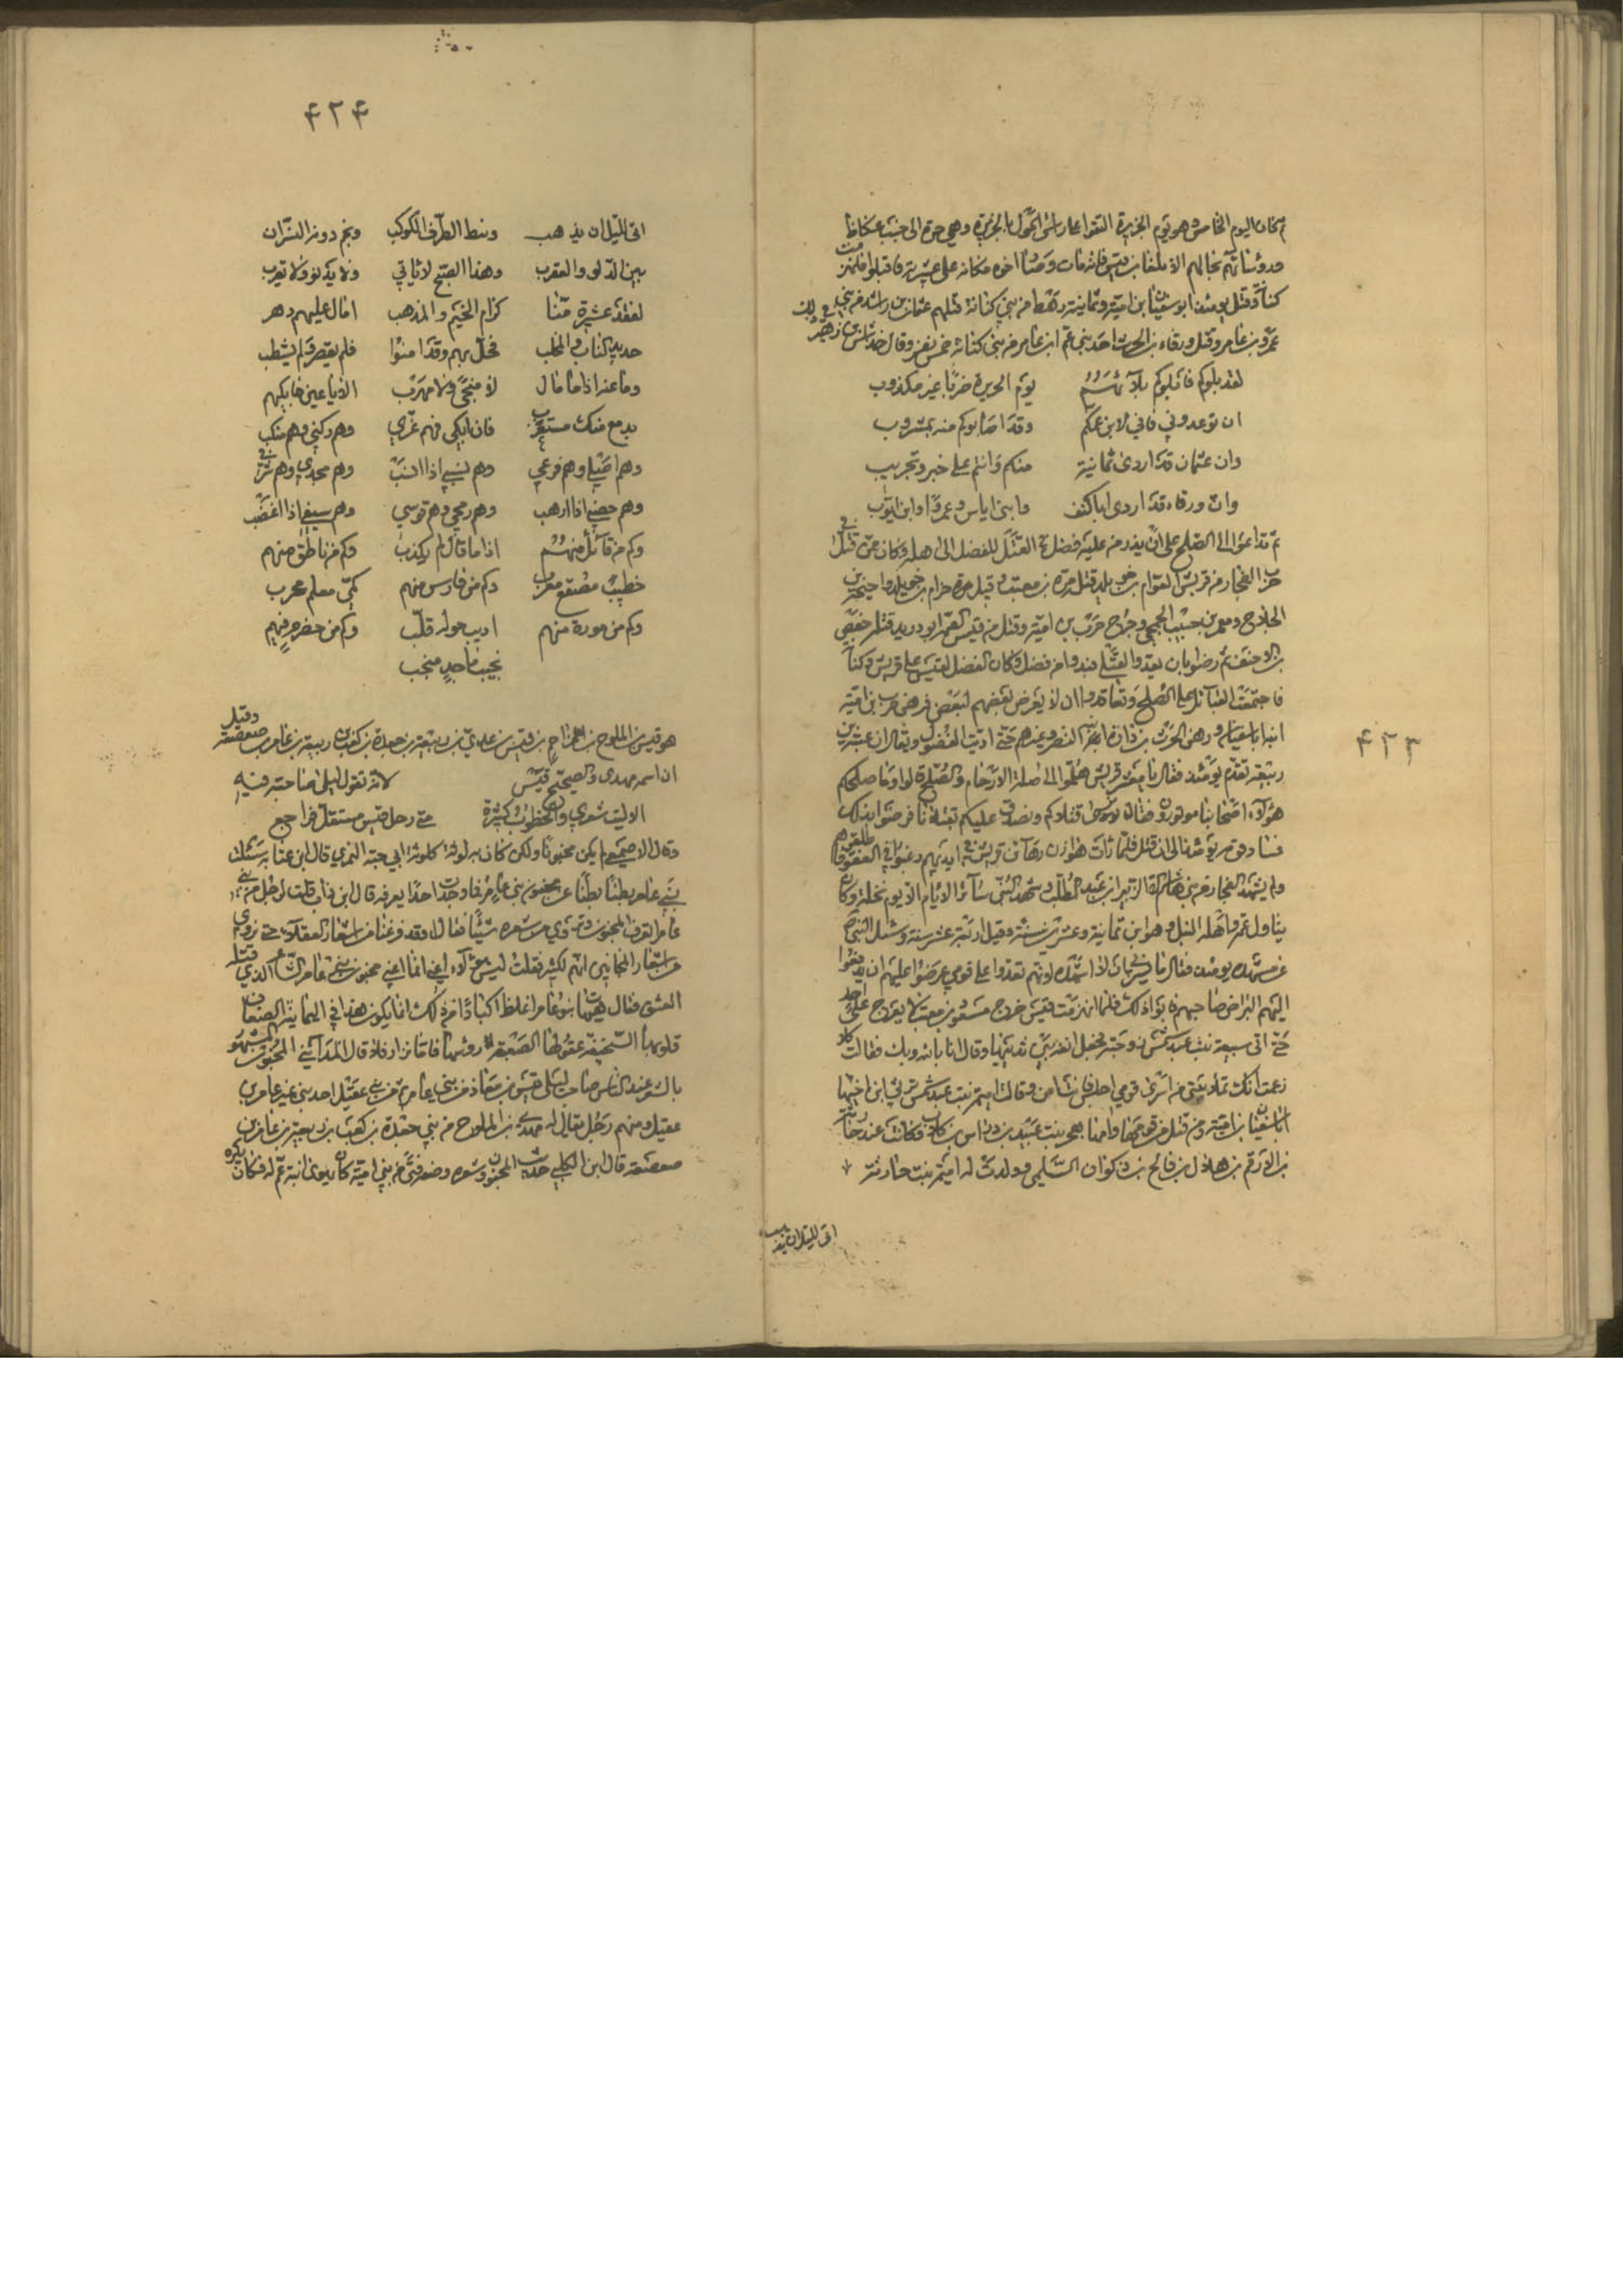 ثم كان اليوم الخامس وهو يوم الحريرة التقوا على رأس الحول بالحريرة وهي حرة الى جنب عكاظ
ورؤساؤهم بحالهم الا بلعا بن قيس فانه مات وصار اخوه مكانه على عشيرته فاقتتلوا فانهزمت
كنانة وقتل يومئذ ابو سفيان بن امية وثمانية رهط من بني كنانة قتلهم عثمان بن راشد من بني
عمرو بن عامر وقتل ورقاء بن الحرث احد بني عمرو ابن عامر من بني كنانة خمسة نفر وقال خداش بن زهير في ذلك
لقد بلوكم فابلوكم بلاءهم يوم الحريرة ضربا غير مكذوب
ان توعدوني فاني لابن عمكم وقد اصابوكم منه بشؤبوب
وان عثمان قد اردى ثمانية منكم وانتم على خبر وتجريب
وان ورقاء قد اردى ابا كنف وابني اياس وعمرا وابن ايوب
ثم تداعوا الى الصلح على ان يذر من عليه فضل في القتلى الفضل الى اهله وكان ممن قتل في
حرب الفجار من قريش العوام بن خويلد قتل مرة بن معتب وقتل حزام بن خويلد واحيحة بن
الجلاح ومعمر بن حبيب الجمحي وجرح حرب بن امية وقتل من قيس الصمة ابو دريد قتله جعفر
بن الاحنف ثم رضوا بان يعدوا القتلى فيدوا من فضل وكان الفضل لقيس على قريش وكنانة
فاجتمعت القبائل على الصلح وتعاقدوا ان لا يعرض بعضهم لبعض فرهن حرب بن امية
ابنه ابا سفيان ورهن الحرث بن كلدة ابنه النضر وغيرهم حتى اديت الفضول ويقال ان عتبة بن
ربيعة تقدم يومئذ فقال يا معشر قريش هلموا الى صلة الارحام والصلح قالوا وما صلحكم
هؤلاء اصحابنا موتورون فقال نرهن قتلاكم ونصدق عليكم بقتلانا فرضوا بذلك
وساد عتبة يومئذ الى ان قتل فلما رأت هوازن رهائن قريش في ايديهم رغبوا في العفو فاطلقوهم
ولم يشهد الفجار من بني هاشم الا الزبير بن عبد المطلب وشهد النبي سائر الايام الا يوم نخلة وكان
يناول عمه واهله النبل وهو ابن ثمانية وعشرين سنة وقيل اربعة عشر سنة وسئل النبي
عن مشهده يومئذ فقال ما يسرني ان لا اشهده انهم تعدوا على قومي عرضوا عليهم ان يدفعوا
اليهم البراض صاحبهم فابوا ذلك فلما انهزمت قيس خرج مسعود بن معتب لا يعرج على احد
حتى اتى سبيعة بنت عبد شمس زوجته فجعل انفه بين ثدييها وقال انا بالله وبك فقالت كلا
زعمت انك تملأ بيتي من اسرى قومي اجلس فانت آمن وقالت اميمة بنت عبد شمس ترثي ابن اخيها
ابا سفيان بن امية ومن قتل من قومها وامها بنت عبيد بن رواس بن كلاب وكانت عند حارثة
بن الاوقص بن هلال بن فالح بن ذكوان السلمي وولدت له اميمة بنت حارثة
ابى الليل ان يذهب
۴۲۳
۴۲۴
ابى الليل ان يذهب ونيط الطرف بالكوكب ونجم دونه النسران
بين الدلو والعقرب وهذا الصبح لا يأتي ولا يدنو ولا يقرب
لفقد عشيرة منا كرام الخيم والمذهب احال عليهم دهر
حديد الناب والمخلب فحل بهم وقد امنوا فلم يقصر ولم يشطب
وما عنه اذا ما حل لا منجى ولا مهرب الا يا عين فابكيهم
بدمع منك مستغرب فان ابكي فهم عزي وهم ركني وهم منكب
وهم اصلي وهم فرعي وهم نسبي اذا انسب وهم مجدي وهم شرفي
وهم حصني اذا ارهب وهم رمحي وهم ترسي وهم سيفي اذا اغضب
وكم من قائل منهم اذا ما قال لم يكذب وكم من ناطق منهم
خطيب مصقع معرب وكم من فارس منهم كمي معلم محرب
وكم من مدره منهم اريب حوله قلب وكم من خضرم منهم
نجيب ماجد منجب
هو قيس بن الملوح بن المزاحم بن قيس بن عدي بن ربيعة بن جعدة بن كعب بن ربيعة بن عامر بن صعصعة وقيل
ان اسمه مهدي والصحيح قيس لانه تقول ليلى صاحبته فيه
الا ليت شعري والخطوب كثيرة متى رحل قيس مستقل فراجع
وقال الاصمعي لم يكن مجنونا ولكن كان به لوثة كلوثة ابي حية النمري قال ابن عتابة سئلت
بني عامر بطنا بطنا عن مجنون بني عامر فما وجدت احدا يعرفه قال ابن داب قلت لرجل من بني
عامر اتعرف المجنون وتروي من شعره شيئا فقال اوقد فرغنا من اشعار العقلاء حتى نروي
من اشعار المجانين انهم لكثير فقلت ليس هؤلاء اعني انما اعني مجنون بني عامر الشاعر الذي قتله
العشق فقال هيهات بنو عامر اغلظ اكبادا من ذلك انما يكون هذا في اليمانية الضعاف
قلوبها السخيفة عقولها الصعلة رؤسها فاما نزار فلا قال المدائني المجنون المشهور
بالشعر عند الناس صاحب ليلى قيس بن معاذ من بني عامر ثم من بني عقيل احد بني نمير بن عامر بن
عقيل ومنهم رجل يقال له مهدي بن الملوح من بني جعدة بن كعب بن ربيعة بن عامر بن
صعصعة قال ابن الكلبي حديث المجنون وشعره وضعه فتى من بني امية كان يهوى ابنة عم له فكان يكره